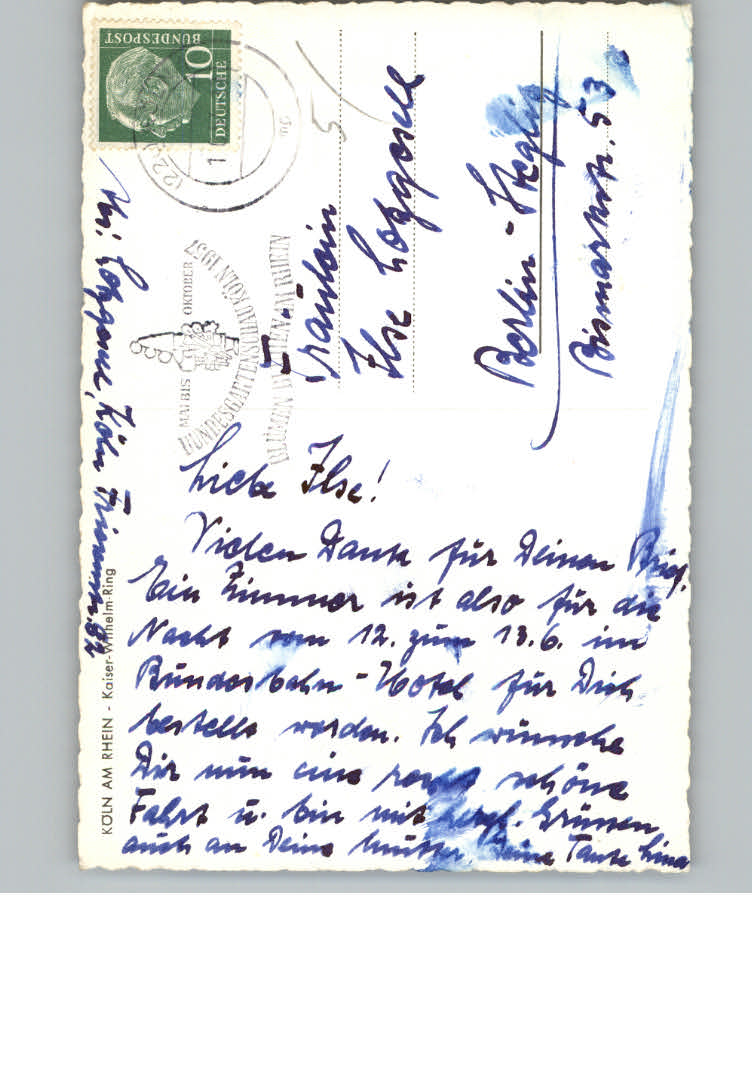 Liebe Ilse!
Vielen Dank für Deinen Brief.
Ein Zimmer ist also für die
Nacht vom 12. zum 13.6. im
Bundesbahn-Hotel für Dich
bestellt worden. Ich wünsche
Dir nun eine recht schöne
Fahrt u. bin mit herzl. Grüssen
auch an Deine Mutter, Deine Tante Lina
Fräulein
Ilse
Berlin-Steglitz
Bismarckstr. 53
Abs:
Köln
82
KÖLN AM RHEIN - Kaiser-Wilhelm-Ring
DEUTSCHE
BUNDESPOST
10
MAI BIS OKTOBER
BUNDESGARTENSCHAU KÖLN 1957
BLUMEN BLÜHEN AM RHEIN
5